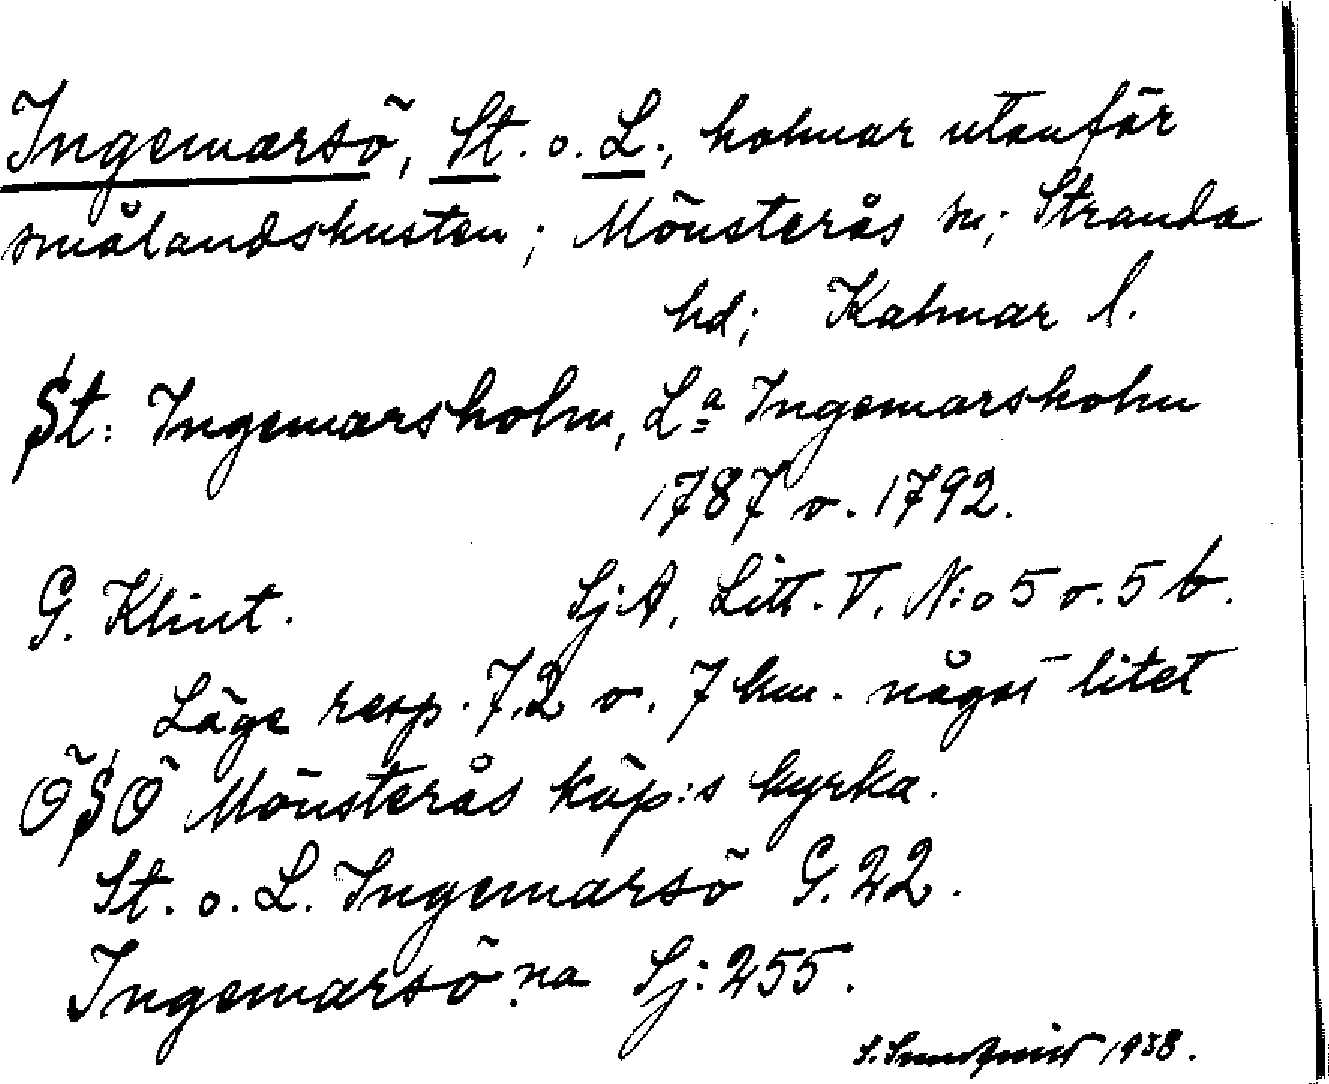 Ingemarsö, St. o. L., holmar utanför
smålandskusten; Mönsterås sn; Stranda
hd; Kalmar l.
St: Ingemarsholm, La Ingemarsholm
1787 o. 1792.
G. Klint. SjA, Litt. V, N:o 5 o. 5 b.
Läge resp. 7,2 o. 7 km. något litet
ÖSÖ Mönsterås köp:s kyrka.
St. o. L. Ingemarsö G. 22.
Ingemarsö:na Sj: 255.
S. Sundqvist 1938.